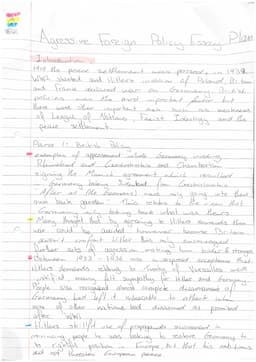 Agressive Foreign Policy Essay Plan
Introduction
1919 the peace settlement was passed, in 1939
WW2 started and Hitlers invasion of Poland, Britain
and France declared war on Germany. British
policies was the most important factor but
there were other important ones such as weakness
of League of Nations, Fascist Ideology and the
peace settlement.
Para 1: British Policy
examples of appeasement include Germany invading
Rhineland and Czechoslovakia and Chamberlain
signing the Munich agreement which resulted
Germany being
after all "the Germans" were only going into their
own back garden". This relates to the view that
Germany was only taking back what was theirs
Many argued by agreeing to Hitlers demands then
war could be avoided however because Britain
didn't confront Hitler this only encouraged
further acts of aggression making him bolder & stronger
Between 1933 - 1936 was a widespread acceptance that
Hitlers demands relating to Treaty of Versailles were
justified, many felt sympathy for Hitler and Germany
People also recognised almost complete disarmament of
Germany had left it vulnerable to attack when
none of the other nations had disarmed as promised
after WW1
Hitlers skillful use of propaganda succeeded in
convincing people he was looking to restore Germany to
its rightful position in Europe but that his ambitions
did not threaten European peace